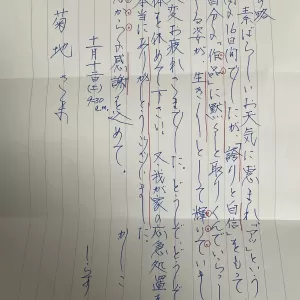 素ばらしいお天気に恵まれ「云」という
16日間でしたが、"誇りと自信"をもって
自分の"作品"に黙々と取りくんでいらっ
しる姿が生き〳〵として輝いていまし
大変お疲れさまでした。どうぞ、どうぞ
体を休めて下さい。又、我が家の応急処置を
本当にありがとうございました。
心からの感謝を込めて。
かしこ
十一月十二日(土)
4:30 a.m.
菊地さま